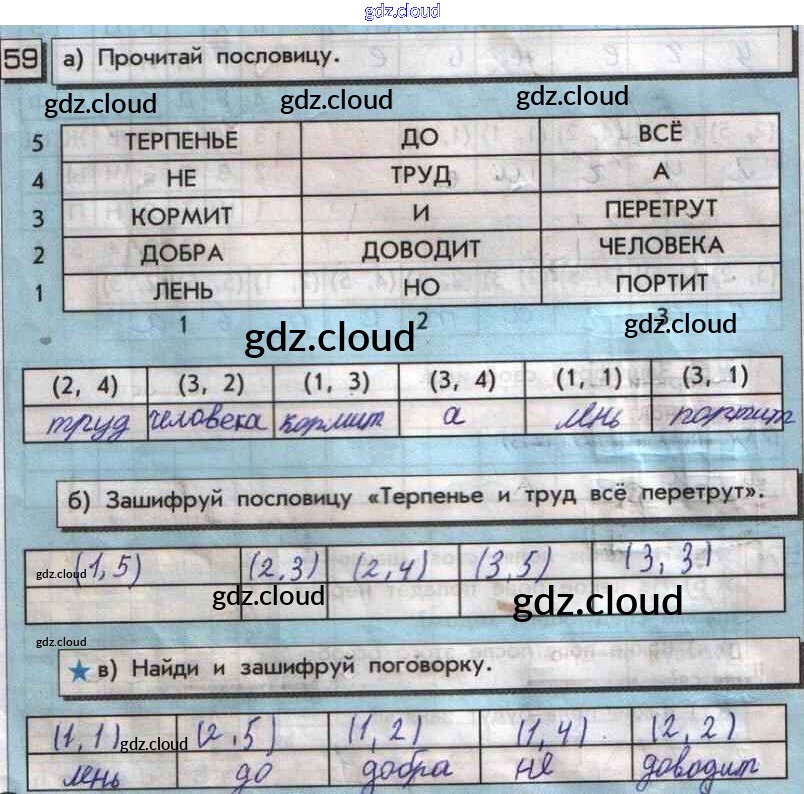 gdz.cloud
59 а) Прочитай пословицу.
gdz.cloud gdz.cloud gdz.cloud
5 ТЕРПЕНЬЕ ДО ВСЁ
4 НЕ ТРУД А
3 КОРМИТ И ПЕРЕТРУТ
2 ДОБРА ДОВОДИТ ЧЕЛОВЕКА
1 ЛЕНЬ НО ПОРТИТ
1 2 3
gdz.cloud gdz.cloud
(2, 4) (3, 2) (1, 3) (3, 4) (1, 1) (3, 1)
труд человека кормит а лень портит
б) Зашифруй пословицу «Терпенье и труд всё перетрут».
(1,5) (2,3) (2,4) (3,5) (3,3)
gdz.cloud gdz.cloud gdz.cloud
gdz.cloud
в) Найди и зашифруй поговорку.
(1,1) (2,5) (1,2) (1,4) (2,2)
gdz.cloud
лень до добра не доводит